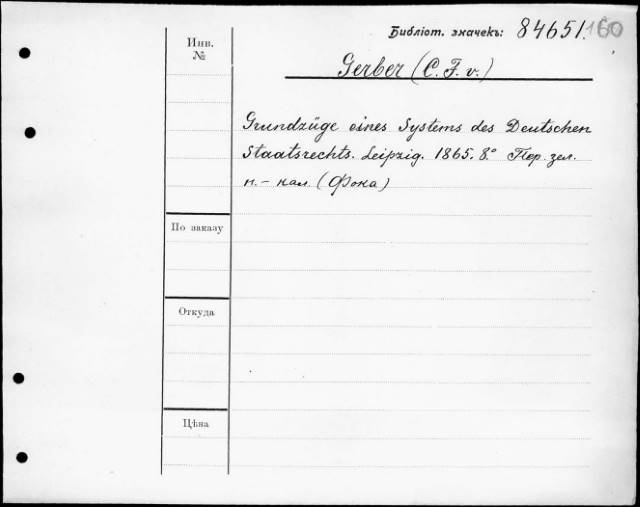 Библіот. значекъ: 84651. 160
Инв.
№
Gerber (C. F. v.)
Grundzüge eines Systems des Deutschen
Staatsrechts. Leipzig. 1865. 8.° Пер. зел.
п. - кал. (Фока)
По заказу
Откуда
Цѣна